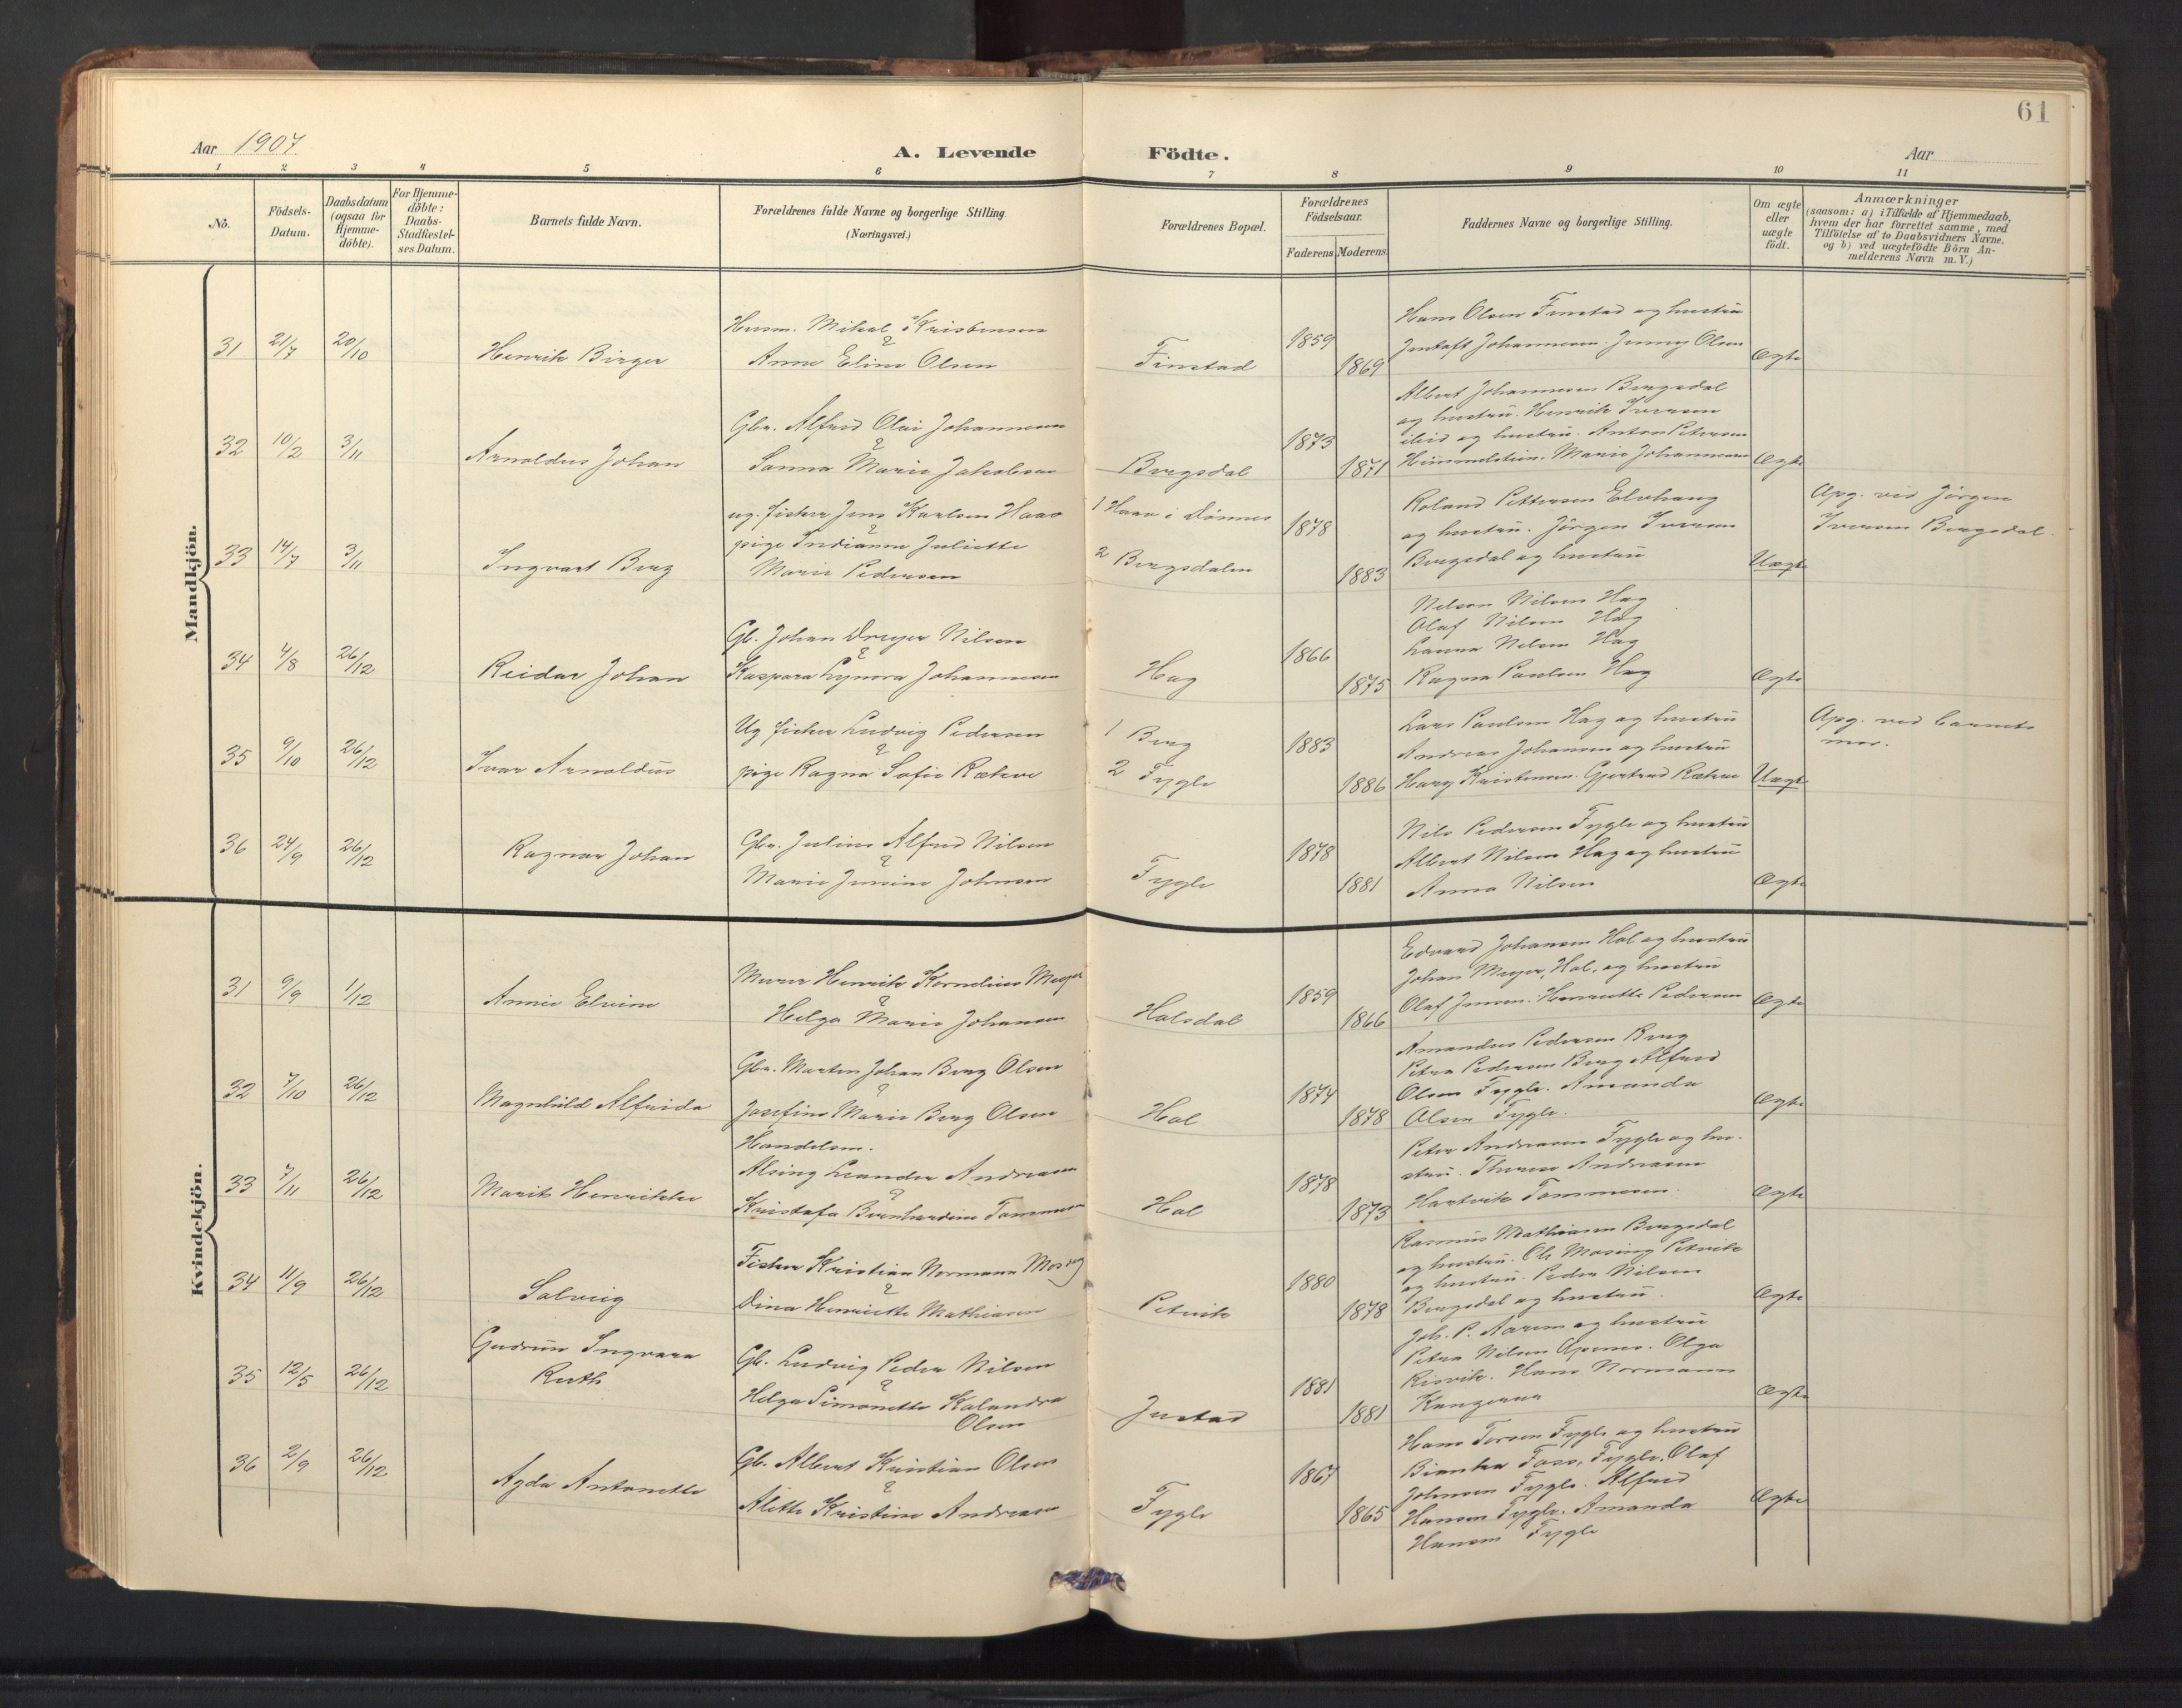 61
Aar 1907
A. Levende
Födte.
Aar
1 2 3 4 5 6 7 8 9 10 11
No.
Födsels-
Datum.
Daabsdatum
(ogsaa for
Hjemme-
döbte).
For Hjemme-
döbte:
Daabs-
Stadfæstel-
ses Datum.
Barnets fulde Navn.
Forældrenes fulde Navne og borgerlige Stilling.
(Næringsvei.)
Forældrenes Bopæl.
Forældrenes
Födselsaar.
Faderens Moderens
Faddernes Navne og borgerlige Stilling.
Om ægte
eller
uægte
födt.
Anmærkninger
(saasom: a) i Tilfælde af Hjemmedaab,
hvem der har forrettet samme, med
Tilföielse af to Daabsvidners Navne.
og b) ved uægtefödte Börn An-
melderens Navn m. V.)
Mandkjön.
31 21/7 20/10
Henrik Birger
Husm. Mikal Kristensen
&
Anne Eline Olsen
Finstad
1859
1869
Hans Olsen Finstad og hustru
Johannesen. Jenny Olsen
Ægte
32 10/2 3/11
Arnoldus Johan
Gbr. Alfred Olai Johannesen
&
Sanna Marie Jakobsen
Bergsdal
1873
1871
Albert Johannesen Bergsdal
og hustru. Henrik Iversen
ibid og hustru. Anton Petersen
Himmelstein. Marie Johannesen
Ægte
33 14/7 3/11
Ingvart Berg
ug. fisker Jens Karlsen Haav
&
pige Indianna Juliette
Marie Pedersen
1 Haav i Dönnes
2 Bergsdalen
1878
1883
Roland Pettersen Elvhaug
og hustru. Jörgen Iversen
Bergsdal og hustru
Uægte
Opg. ved Jörgen
Iversen Bergsdal.
34 4/8 26/12
Reidar Johan
Gb. Johan Dreyer Nilsen
&
Kaspara Lynora Johannesen
Hag
1866
1875
Nelson Nilsen Hag
Olaf Nilsen Hag
Lanna Nilsen Hag
Ragna Paulsen Hag
Ægte
35 9/10 26/12
Ivar Arnoldus
Ug fisker Ludvig Pedersen
&
pige Ragna Sofie Rækve
1 Berg
2 Fygle
1883
1886
Lars Paulsen Hag og hustru
Andreas Johansen og hustru
Harg Kristensen. Gjertrud Rækve
Uægte
Opg. ved barnets
mor.
36 24/9 26/12
Ragnar Johan
Gbr. Julius Alfred Nilsen
&
Marie Jensine Johnsen
Fygle
1878
1881
Nils Pedersen Fygle og hustru
Albert Nilsen Hag og hustru
Anna Nilsen
Ægte
Kvindekjön.
31 9/9 1/12
Annie Elvine
Murer Henrik Kornelius Meyer
&
Helga Marie Johansen
Halsdal
1859
1866
Edvard Johansen Hol og hustru
Johan Meyer, Hol, og hustru
Olaf Jensen. Henriette Pedersen
Ægte
32 7/10 26/12
Magnhild Alfrida
Gbr. Morten Johan Berg Olsen
&
Josefine Marie Berg Olsen
Hol
1874
1878
Amandus Pedersen Berg
Petra Pedersen Berg Alfred
Olsen Fygle. Amanda
Olsen Fygle.
Ægte
33 7/11 26/12
Marit Henrikke
Handelsm.
Alsing Leander Andreasen
&
Kristofa Bernhardine Tommesen
Hol
1878
1873
Peter Andreasen Fygle og hu-
stru. Therese Andreasen
Hartvik Tommesen.
Ægte
34 11/9 26/12
Solveig
Fisker Kristian Normann Mosing
&
Dina Henriette Mathiasen
Petvik
1880
1878
Rasmus Mathiasen Bergsdal
og hustru. Ole Mosing Petvik
og hustru. Peder Nilsen
Bergsdal og hustru.
Ægte
35 12/5 26/12
Gudrun Ingvara
Ruth
Gb. Ludvig Peder Nilsen
&
Helga Simonette Kalandra
Olsen
Justad
1881
1881
Joh. P. Aarsen og hustru
Petra Nilsen Opsnes. Olga
Risvik. Hans Normann
Kangerua
Ægte
36 2/9 26/12
Agda Antonette
Gb. Albert Kristian Olsen
&
Alette Kristine Andreasen
Fygle
1867
1865
Hans Torsen Fygle og hustru
Bianka Foss, Fygle, Olaf
Johnsen Fygle. Alfred
Hansen Fygle. Amanda
Hansen Fygle
Ægte